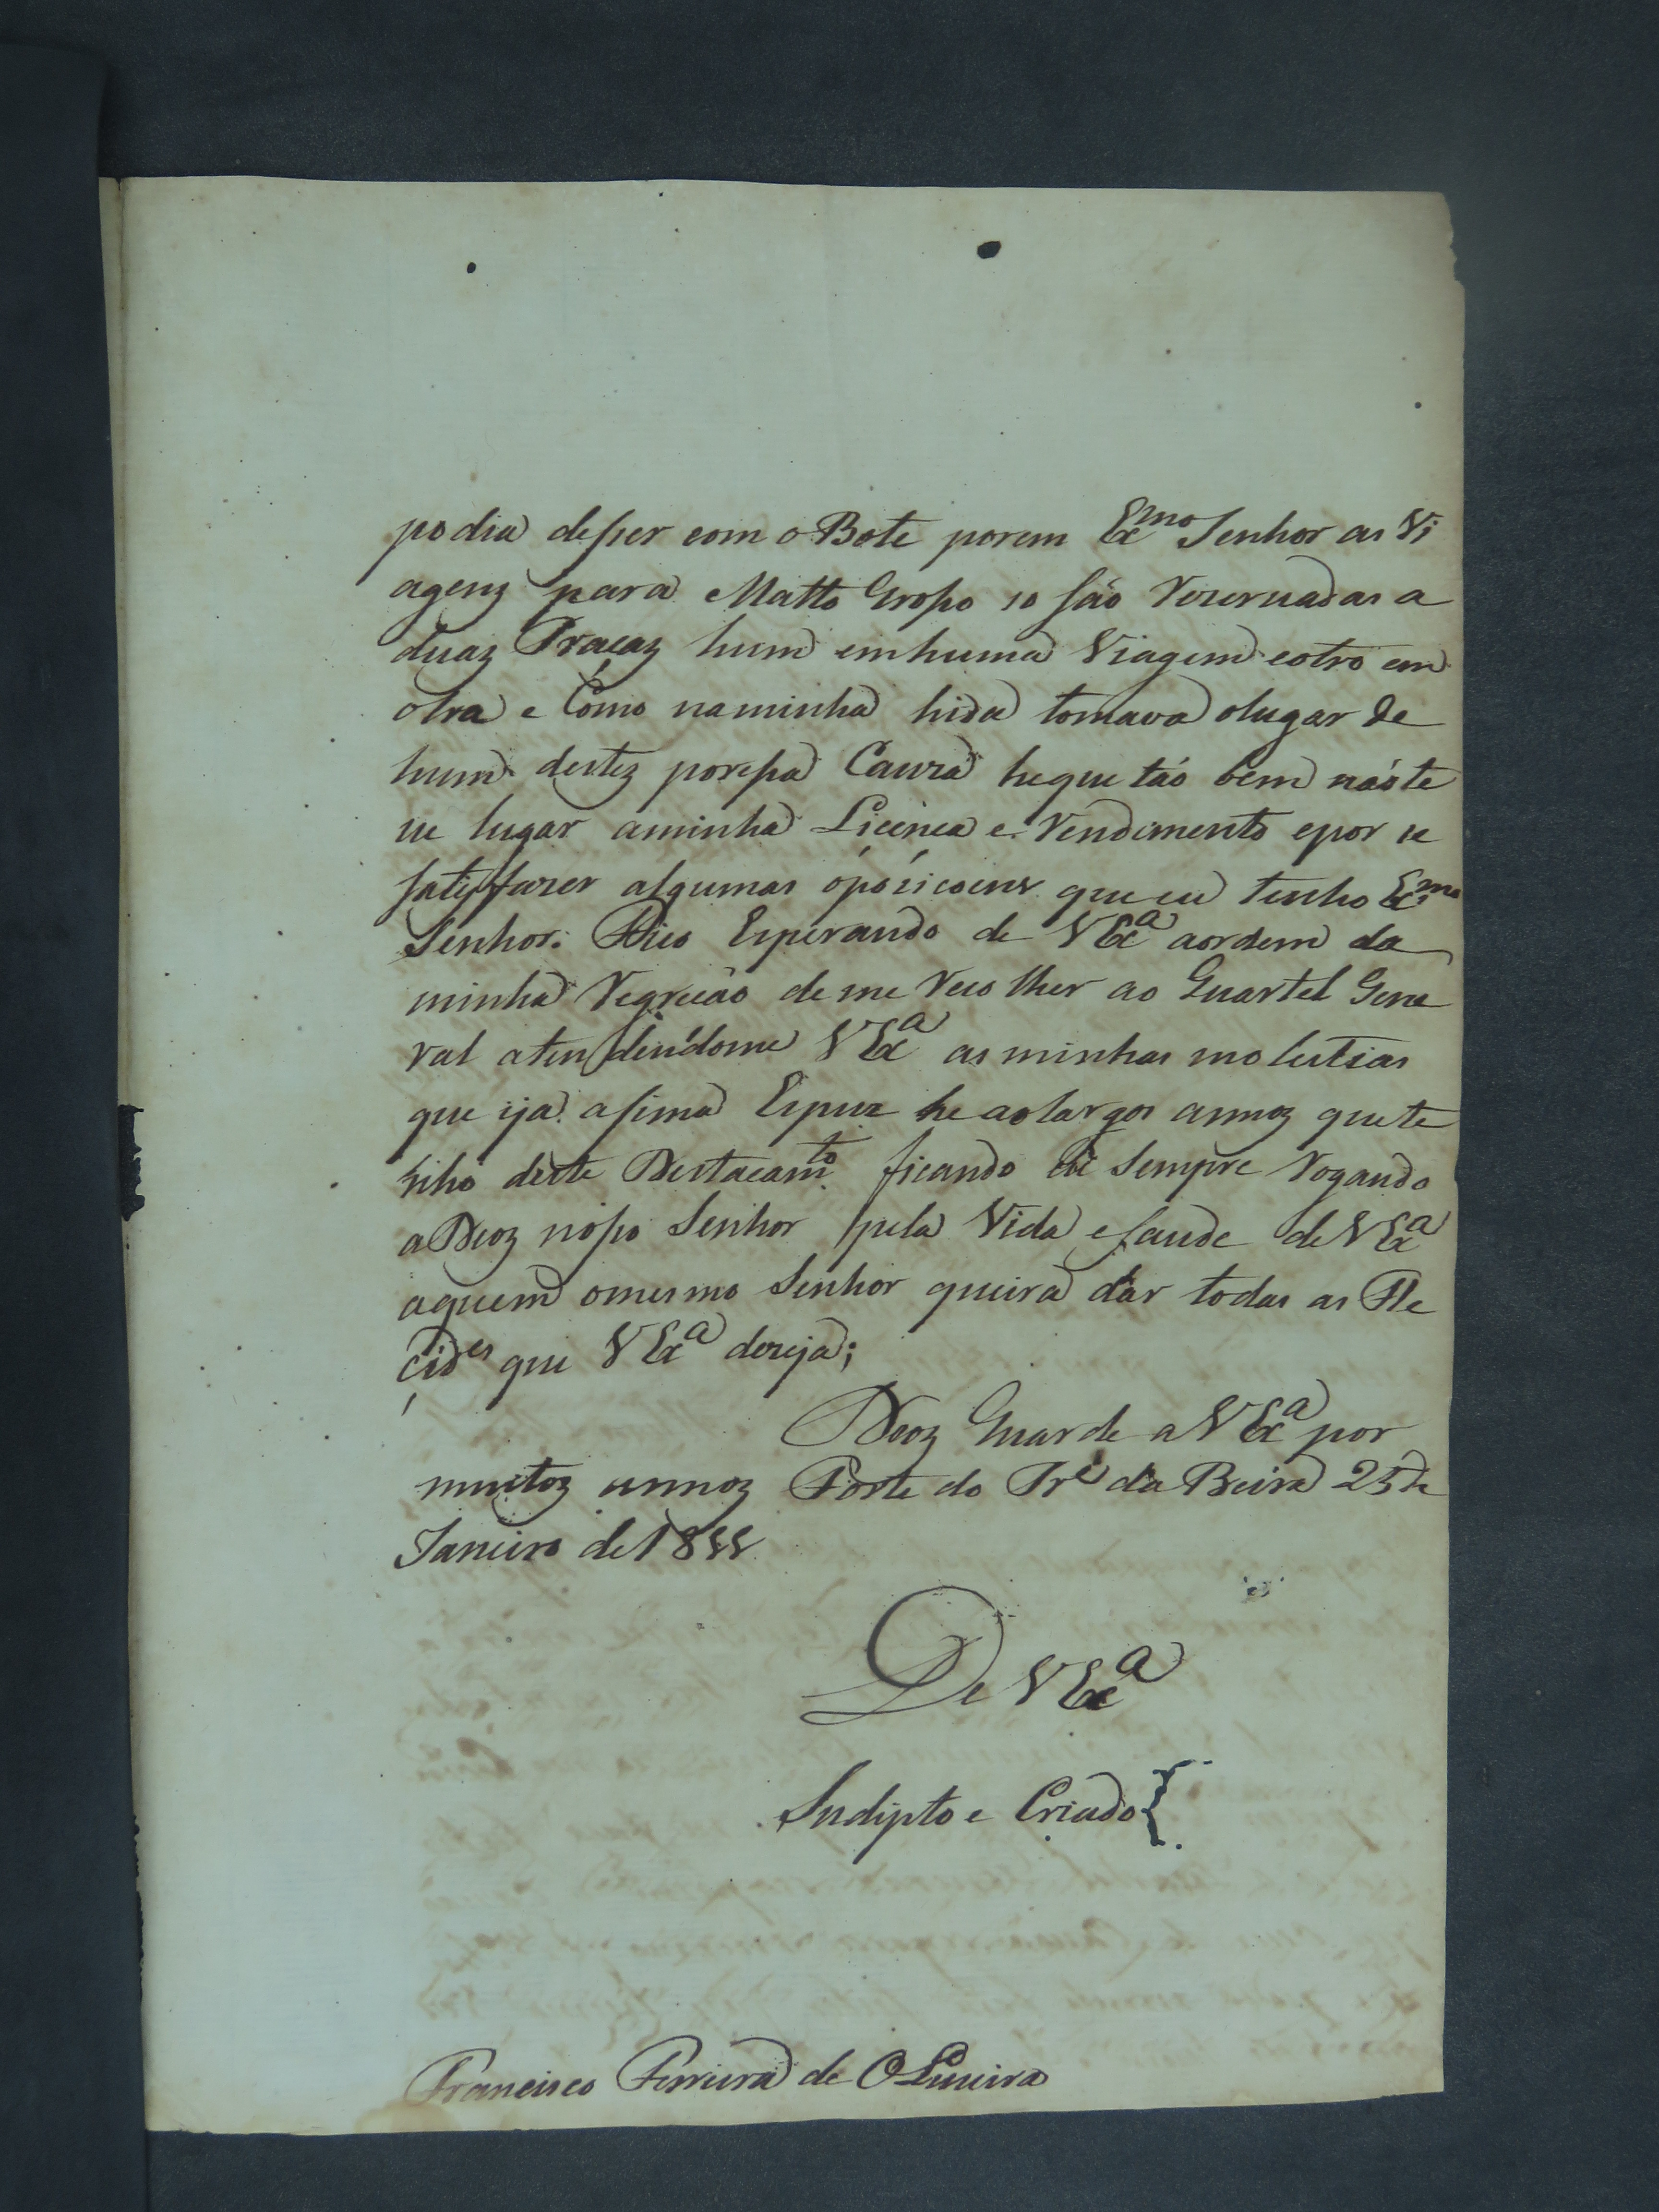 podia desser com o Bote porem Exmo Senhor as Vi
agenz para Matto Grosso so são Rezervadas a
duaz Praçaz hum emhuma Viagem eotro em
otra e Como naminha hida tomava olugar de
hum destez poressa Cauza heque tão bem nãote
ve lugar aminha Licença e Rendimento epor se
satisfazer algumas ópósicoens que eu tenho Exmo
Senhor. Fico Esperando de VExa aordem da
minha Regreção de me Recolher ao Quartel Gene
ral atendendome VExa as minhas molestias
que ija asima Espuz he aolargos annoz que te
nho deste Destacamto ficando eu Sempre Rogando
aDeoz nósso Senhor pela Vida esaude de VExa
aquem omesmo Senhor queira dar todas as Fle
çides que VExa dezeja;
Deoz Guarde a VExa por
muitoz annoz Forte do Pre da Beira 25 de
Janeiro de 1855
De VExa
Sudipto e Criado
Francisco Ferreira de Oliveira